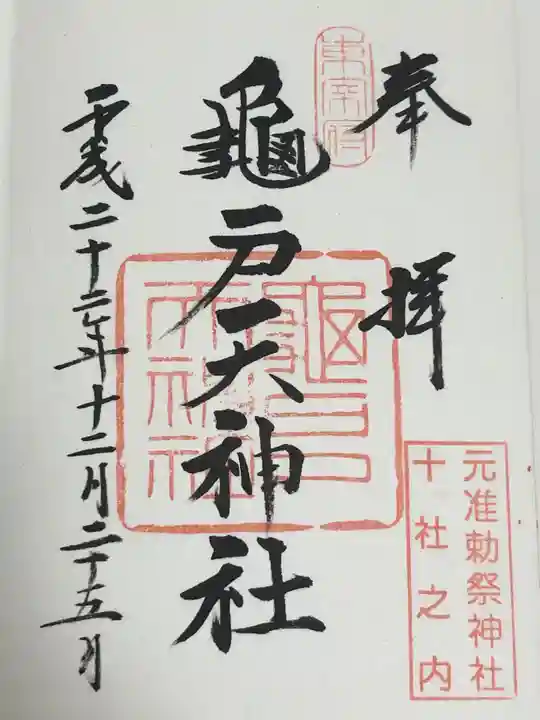 奉拝
東宰府
元准勅祭神社
十社之内
龜戸天神社
龜戸天神社
平成二十二年十二月二十五日